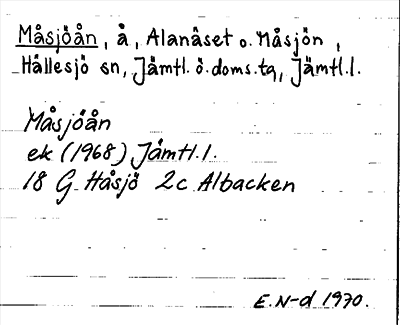 Måsjöån, å, Alanäset o. Måsjön,
Hällesjö sn, Jämtl. ö. doms. tg, Jämtl. l.
Måsjöån
ek (1968) Jämtl. l.
18 G Håsjö 2c Albacken
E. N-d 1970.